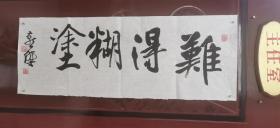 難得糊塗
主任室